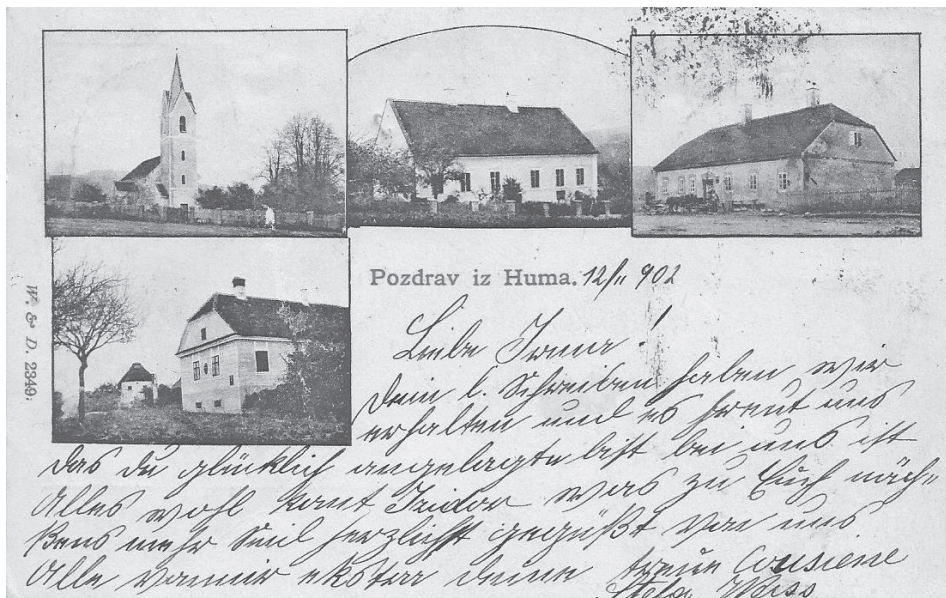 Pozdrav iz Huma. 12/11 902
W. & D. 2349.
Liebe Irma!
Dein l. Schreiben haben wir
erhalten und es freut uns
das du glücklich angelagte bist bei uns ist
Alles wohl Isidor was zu Euch näch-
stens mehr herzlichst gegüßt von uns
Alle deine treue Cousiene
Weiss